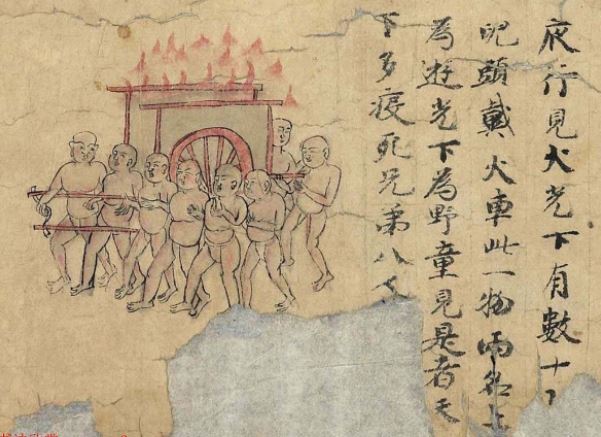 夜行見火光下有數十
兒頭戴火車此一物兩名上
為遊光下為野童見是者天
下多疫死兄弟八